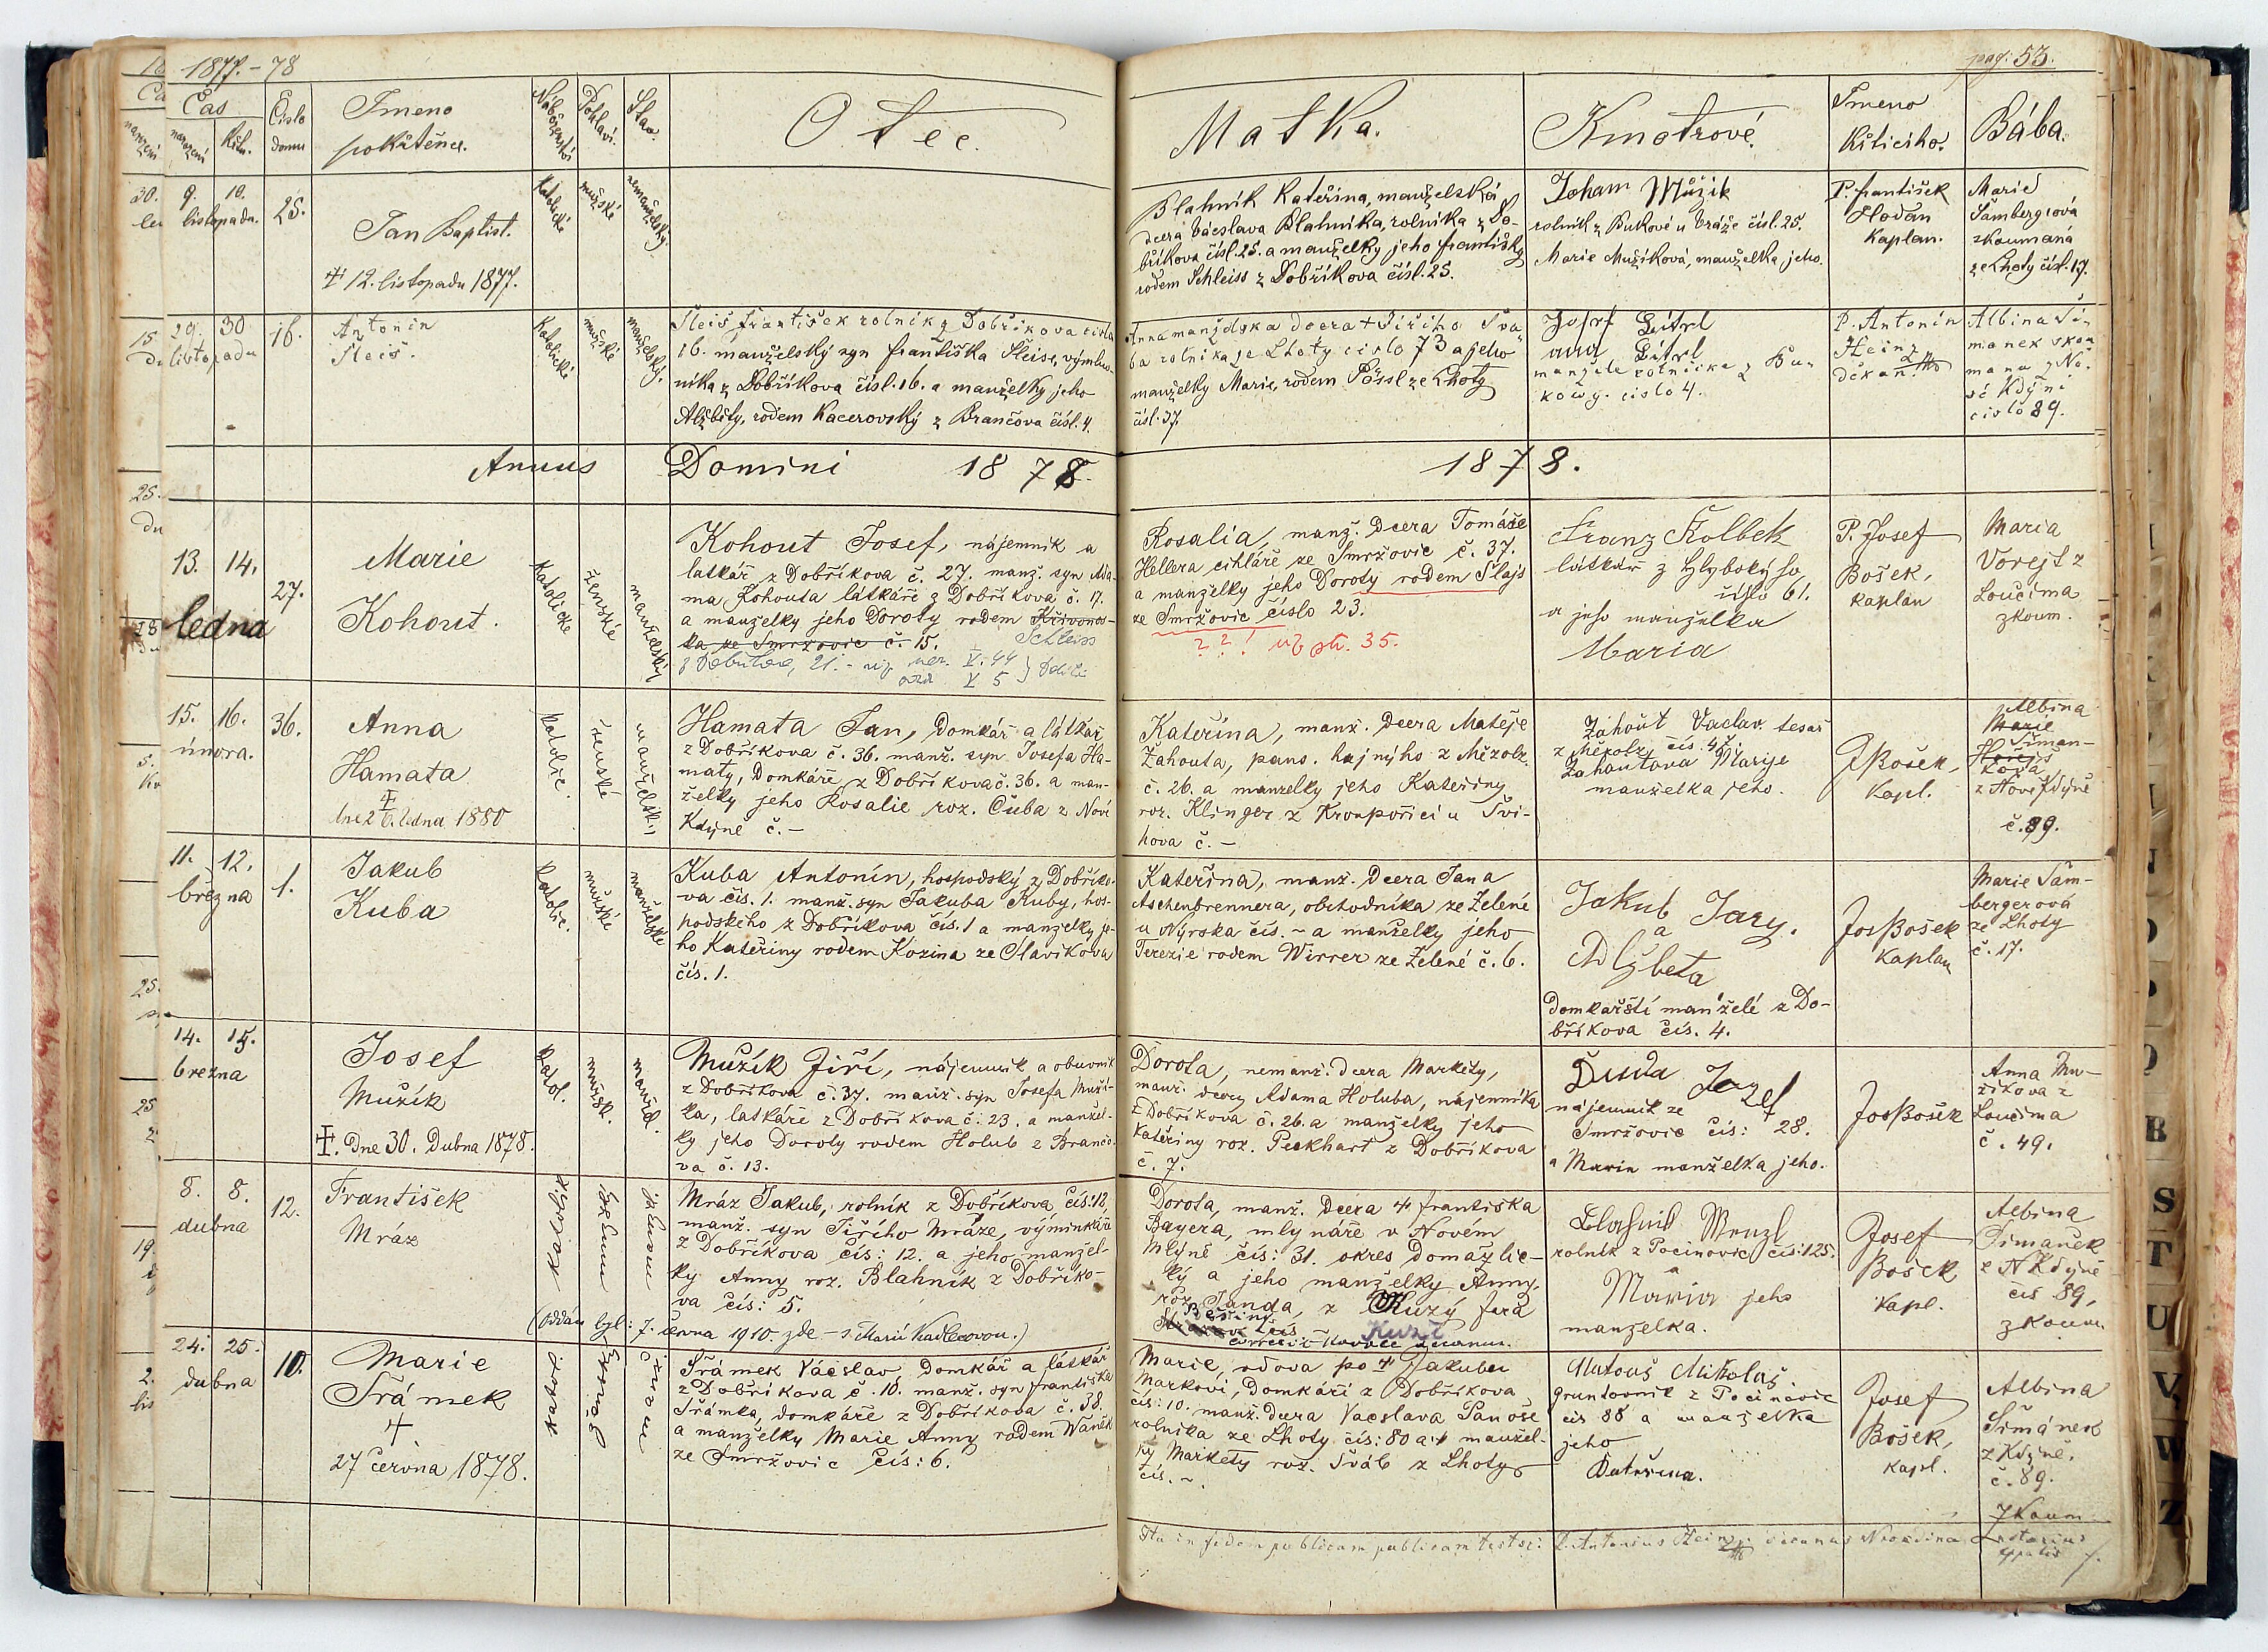 1877.-78
pag: 53.
Čas
narození
křtu.
Číslo
domu
Jmeno
pokřtěnce.
Náboženství
Pohlaví.
Stav.
Otec.
Matka.
Kmotrové.
Jmeno
křticiho.
Bába.
9. 10.
listopadu.
25.
Jan Baptist.
12. listopadu 1877.
katolické
mužské
nemanželský
Blahnik Kateřina, manželská
dcera Václava Blahnika, rolníka z Do-
bříkova čísl. 25. a manželky jeho Františky
rodem Schleiss z Dobříkova čísl. 25.
Joham Mužik
rolník z Bukové u Vráže čísl. 25.
Marie Mužíková, manželka jeho.
P. František
Hodan
Kaplan.
Marie
Šambergrová
zkoumaná
ze Lhoty čísl. 17.
29. 30
listopadu
16.
Antonin
Šleis.
Katolické
mužské
manželský.
Šleis František rolnik z Dobřikova cislo
16. manželský syn Františka Šleise, výmin-
níka z Dobříkova čísl. 16. a manželky jeho
Alžběty, rodem Kacerovský z Brančova čísl. 4.
Anna manzelska dcera + Jiřiho Šva
ba rolnika ze Lhoty cislo 73 a jeho
manželky Marie, rodem Pössl ze Lhoty
čísl. 37.
Josef Gitrl
anna Gitrl
manzele rolnicke z Bu-
kowy. cislo 4.
P. Antonin
Heinz
děkan.
Albina Ši-
manek zkou
mana z No-
vé Kdýni
cislo 89.
Annus Domini 1878.
1878.
13. 14.
ledna
27.
Marie
Kohout.
Katolické
ženské
manželský
Kohout Josef, nájemnik a
latkář z Dobříkova č. 27. manž. syn Ada-
ma Kohouta látkáře z Dobříkova č. 17.
a manželky jeho Doroty rodem Křivonos-
ka ze Smržovic č. 15. Schleiss
Rosalia, manž. Dcera Tomáše
Hellera cihláře ze Smržovic č. 37.
a manželky jeho Doroty rodem Šlajs
ze Smržovic číslo 23.
??! str. 35.
Franz Kolbek
látkář z
číslo 61.
a jeho manželka
Maria
P. Josef
Bošek,
kaplan
Maria
Vorejt z
Loučima
zkoum.
15. 16.
února.
36.
Anna
Hamata
Dne 26. ledna 1880
katolic.
ženské
manželsk.
Hamata Jan, Domkář a látkář
z Dobříkova č. 36. manž. syn Josefa Ha-
maty, Domkáře z Dobříkova č. 36. a man-
želky jeho Rosalie roz. Čuba z Nové
Kdyně č. –
Kateřina, manž. Dcera Matěje
Žahouta, pans. hajného z Mězolz.
č. 26. a manzelky jeho Kateřiny
roz. Klinger z Kronpořicí u Švi-
hova č. –
Záhout Vaclav. tesař
z Mězolz čís. 47.
Zahoutova Marije
manželka jeho.
J Bošek,
Kapl.
Albina
Marie
Šiman-
kova,
z Nové Kdyně
č. 89.
11. 12.
března
1.
Jakub
Kuba
katolic.
mužské
manželské
Kuba Antonín, hospodský z Dobříko-
va čís. 1. manž. syn Jakuba Kuby, hos-
podského z Dobříkova čís. 1 a manželky je-
ho Kateřiny rodem Kozina ze Slavikova
čís. 1.
Kateřina, manž. Dcera Jana
Aschenbrennera, obchodníka ze Zelené
u Nýrska čís. ~ a manželky jeho
Terezie rodem Wirrer ze Zelené č. 6.
Jakub Jary.
a
Alžbeta
Domkařští manželé z Do-
bříkova čís. 4.
Jos Bošek
Kaplan
Marie Šam-
bergerová
ze Lhoty
č. 17.
14. 15.
března
Josef
Mužík
Dne 30. Dubna 1878.
katol.
mužsk.
manžel.
Mužík Jiří, nájemnik a obuvnik
z Dobříkova č. 37. manž. syn Josefa Muží-
ka, latkáře z Dobříkova č. 23. a manžel-
ky jeho Doroty rodem Holub z Brančo-
va č. 13.
Dorota, nemanž. Dcera Markéty,
manž. dcery Adama Holuba, nájemníka
z Dobříkova č. 26. a manželky jeho
Kateřiny roz. Peckhart z Dobříkova
č. 7.
Duda Jozef
nájemnik ze
Smržovic čís: 28.
a Maria manželka jeho.
Jos Bošek
Anna Mu-
žikova z
Loučima
č. 49.
8. 8.
dubna
12.
František
Mráz
Mráz Jakub, rolník z Dobříkova, čís: 12,
manž. syn Jiřího Mráze, výminkáře
z Dobříkova čís: 12. a jeho manžel-
ky Anny roz. Blahník z Dobříko-
va čís: 5.
(oddán byl: 7. června 1910. zde – s Marií Kadlecovou.)
Dorota, manž. Dcera + Františka
Bayera, mlynáře v Novém
Mlýně čís: 31. okres Domažlic-
ký a jeho manželky Anny,
roz. Janda, z
Kuzí
Blahnik Wenzl
rolník z Pocinovic čís: 125.
a
Maria jeho
manzelka.
Josef
Bošek
Kapl.
Albina
Šimaněk
z N Kdyně
čís 89,
zkoum
24. 25.
dubna
10.
Marie
Šrámek
27 června 1878.
Šrámek Václav, Domkář a látkář
z Dobříkova č. 10. manž. syn Františka
Šrámka, domkáře z Dobříkova č. 38.
a manželky Marie Anny rodem Waněk
ze Smržovic čís: 6.
Marie, vdova po + Jakubu
Markovi, Domkáři z Dobříkova
čís: 10. manž. Dcera Vacslava Panoše
rolnika ze Lhoty čís: 80 a + manžel-
ky Markety roz. Šváb z Lhoty
čís. ~.
Matouš Mikolaš.
gruntovnik z Pocinovic
čís 88 a manželka
jeho
Kateřina.
Josef
Bošek,
kapl.
Albina
Šimánek
z Kdyně.
č. 89.
Zkoum
Ita in fidem publicam testor: P. Antonius Heinz decanus